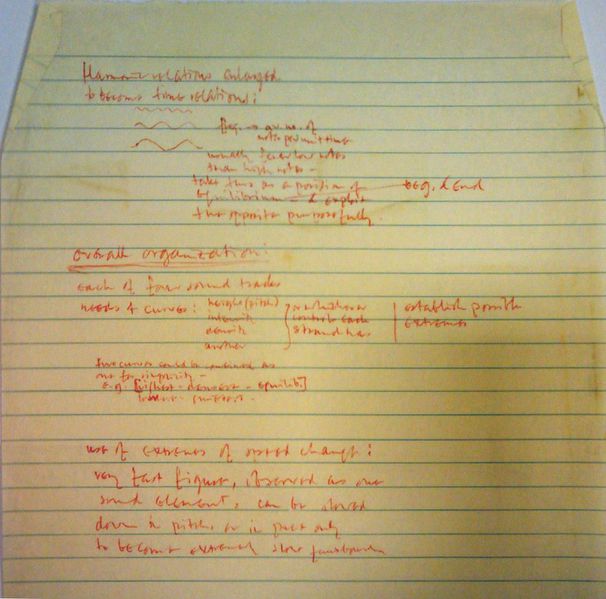 Harmonic relations enlarged
to become time relations:
freq. → av. no. of
notes per unit time
usually fewer low notes
than high notes –
take this as a position of beg. & end
equilibrium – & exploit
the opposite purposefully.
overall organization:
each of four sound tracks
needs 4 curves: height (pitch)
intensity
density
another
control each
strand has
establish possible
extremes
two curves could be combined as
one for simplicity –
e.g. [highest – densest – equilib.]
use of extremes of speed change:
very fast figure, observed as one
sound element, can be slowed
down in pitch or in pace only
to become extremely slow